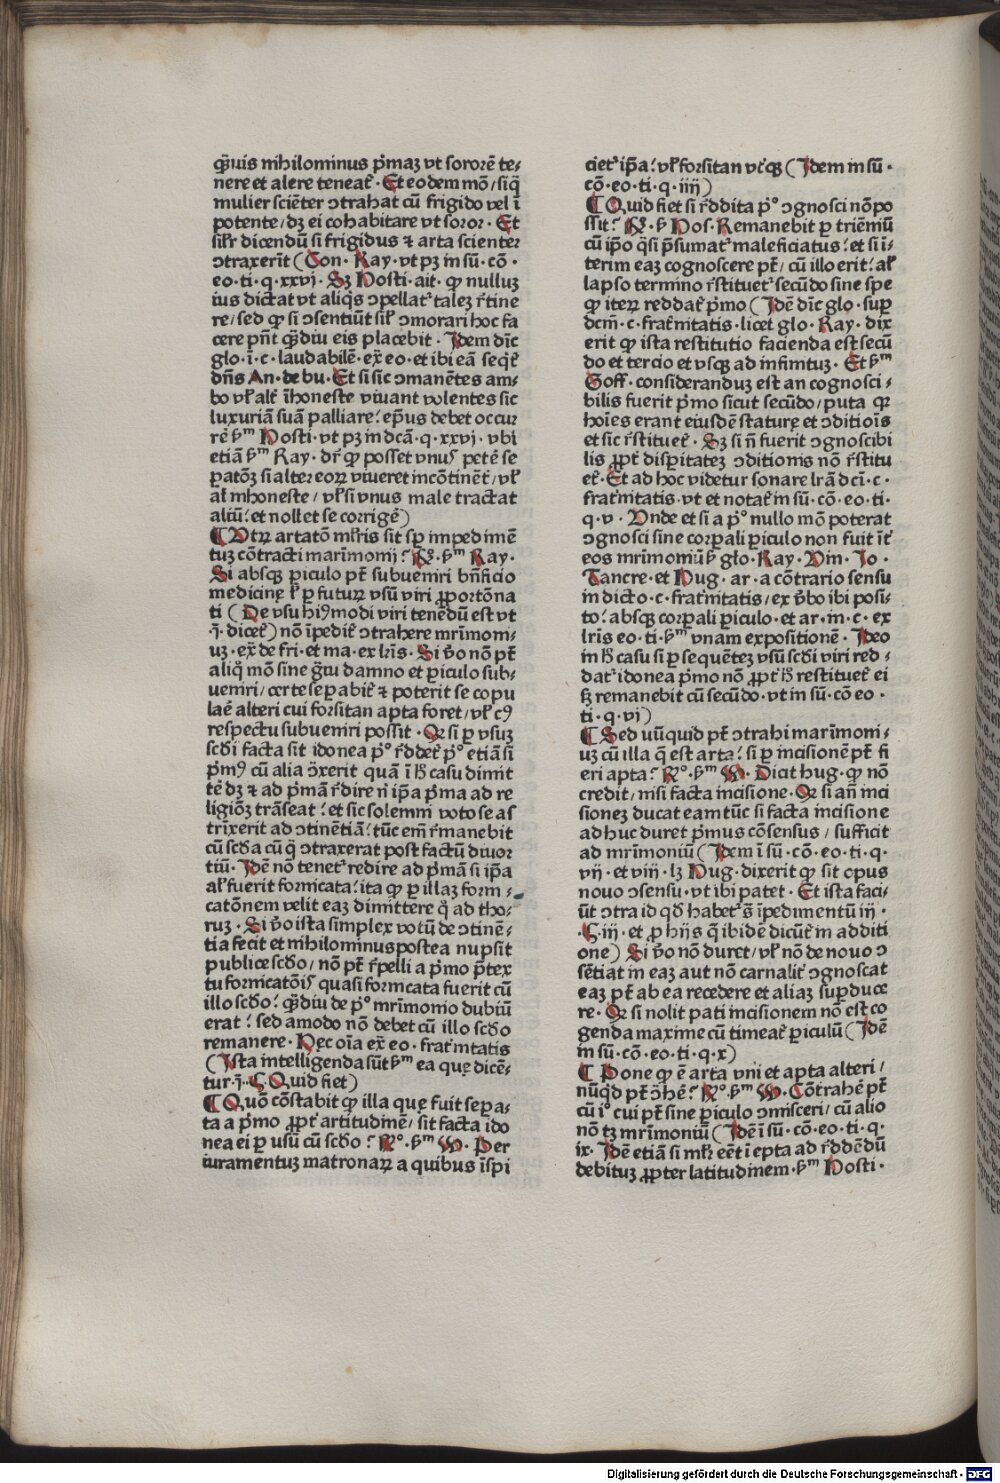 qͣuis nihilominus p̄maꝫ vt sororē te⸗
nere et alere teneat᷑ · Et eodem mō / siq̄
mulier sciēter ꝯtrahat cū frigido vel ī
potente / dꝫ ei cohabitare vt soror · Et
silꝛ dicendū si frigidus ⁊ arta scienter
ꝯtraxerīt ( Con · Ray · vt pꝫ in sū · cō ·
eo · ti · q · xxvj · Sꝫ Hosti · ait · ꝙ nulluꝫ
ius dictat vt aliq̄s ꝯpellat᷑ taleꝫ r̄tine
re / sed ꝙ si ꝯsentiūt sil̄ ꝯmorari hoc fa
cere pn̄t qͣdiu eis placebit · Idem dīc
glo · ī · c · laudabilē · ex̄ eo · et ibi eā seq̄t᷑
dn̄s An · de bu · Et si sic ꝯmanētes am⸗
bo vl̓ alt̓ īhoneste viuant volentes sic
luxuriā suā palliare ? ep̄us debet occur
rē ẜm Hosti · vt pꝫ in dcā · q · xxvj · vbi
etiā ẜm Ray · dr̄ ꝙ posset vnus petē se
ꝑatōꝫ si alter eoꝝ viueret incōtinēt̓ / vl̓
al̓ inhoneste / vl̓ si vnus male tractat
aliū ? et nollet se corrigē )
¶ Vtꝝ artatō ml̓ris sit sꝑ impedimē
tuꝫ cōtracti matrimonij ? R̄o · ẜm Ray ·
Si absqꝫ ꝑiculo pt̄ subueniri bn̄ficio
medicinę l̓ ꝑ futuꝝ vsū viri ꝓportōna
ti ( De vsu hiꝰmodi viri tenēdū est vt
· j̄ · dicet᷑ ) nō īpedit̓ ꝯtrahere mr̄imoni⸗
uꝫ · ex̄ de fri · et ma · ex lr̄is · Si v̄o nō pt̄
aliq̄ mō sine gͣui damno et ꝑiculo sub⸗
ueniri / certe seꝑabit᷑ ⁊ poterit se copu
laē alteri cui forsitan apta foret / vl̓ cꝰ
respectu subueniri possit · Qꝛ si ꝑ vsuꝫ
scd̄i facta sit idonea p̄º r̄ddet᷑ p̄º etiā si
p̄mꝰ cū alia ꝯ̄xerit quā ī h̄ casu dimit
tē dꝫ ⁊ ad p̄mā r̄dire ni ip̄a p̄ma ad re
ligiōꝫ trāseat ? et sic solemni voto se as
trīxerit ad ꝯtinētiā ? tūc em̄ r̄manebit
cū scd̄a cū q̄ ꝯtraxerat post factū diuor
tiū · Idē nō tenet᷑ redire ad p̄mā si ip̄a
al̓ fuerit fornicata ? ita ꝙ ꝑ illaꝫ forni⸗
catōnem velit eaꝫ dimittere q̄ ad tho⸗
ruꝫ · Si v̄o ista simplex votū de ꝯtinē⸗
tia fecit et nihilominus postea nupsit
publice scd̄o / nō pt̄ r̄pelli a p̄mo p̄tex
tu fornicatōis quasi fornicata fuerit cū
illo scd̄o ? qͣdiu de p̄º mr̄imonio dubiū
erat ? sed amodo nō debet cū illo scd̄o
remanere · Hęc oīa ex̄ eo · frat᷑nitatis
( Ista intelligenda sūt ẜm ea quę dicē⸗
tur · j̄ · § Quid fiet )
¶ Quō cōstabit ꝙ illa quę fuit seꝑa⸗
ta a p̄mo ꝓpt̓ artitudinē / sit facta ido
nea ei ꝑ vsū cū scd̄o ? R̄o · ẜm W · Per
iuramentuꝫ matronaꝝ a quibus īspi
ciet᷑ ip̄a ? vl̓ forsitan vt̓qꝫ ( Idem in sū ·
cō · eo · ti · q · iiij )
¶ Quid fiet si r̄ddita p̄º ꝯgnosci nō po
ssit ? R̄o · ẜ Hos · Remanebit ꝑ triēniū
cū ip̄o q̄si p̄sumat᷑ maleficiatus ? et si ī⸗
terim eaꝫ cognoscere pt̄ / cū illo erit ? al̓
lapso termino r̄stituet᷑ secūdo sine spe
ꝙ iteꝝ reddat᷑ p̄mo ( Idē dīc glo · suꝑ
dcm̄ · c · frat᷑nitatis · licet glo · Ray · dix
erit ꝙ ista restitutio facienda est secū
do et tercio et vsqꝫ ad infinituꝫ · Et ẜm
Goff · consideranduꝫ est an cognosci⸗
bilis fuerit p̄mo sicut secūdo / puta qꝛ
hoīes erant eiusdē staturę et ꝯditiōis
et sic r̄stituet᷑ · Sꝫ si n̄ fuerit ꝯgnoscibi
lis ꝓpt̓ disꝑitateꝫ ꝯditionis nō r̄stitu
et᷑ · Et ad hoc videtur sonare lr̄a dc̄i · c ·
frat᷑nitatis · vt et notat᷑ in sū · cō · eo · ti ·
q · v · Vnde et si a p̄º nullo mō poterat
ꝯgnosci sine corꝑali ꝑiculo non fuit īt᷑
eos mr̄imoniū ẜ glo · Ray · Vin · Io ·
Tancre · et Hug · ar · a cōtrario sensu
in dicto · c · frat᷑nitatis / ex v̄bo ibi posi⸗
to ? absqꝫ corꝑali ꝑiculo · et ar · in · c · ex
lr̄is eo · ti · ẜm vnam expositionē · Ideo
in h̄ casu si ꝑ sequēteꝫ vsū scd̄i viri red⸗
dat᷑ idonea p̄mo nō ꝓpt̓ h̄ restituet᷑ ei
sꝫ remanebit cū secūdo · vt in sū · cō eo ·
ti · q · vj )
¶ Sed nūquid pt̄ ꝯtrahi matrimoni⸗
uꝫ cū illa q̄ est arta ? si ꝑ incisionē pt̄ fi
eri apta ? R̄o · ẜm W · Dicit hug · ꝙ nō
credit / nisi facta incisione · Qꝛ si an̄ inci
sioneꝫ ducat eam tūc si facta incisione
adhuc duret p̄mus cōsensus / sufficit
ad mr̄imoniū ( Idem ī sū · cō · eo · ti · q ·
vij · et viij · lꝫ Hug · dixerit ꝙ sit opus
nouo ꝯsensu · vt ibi patet · Et ista faci⸗
ūt ꝯtra id qd̄ habet᷑ s̄ īpedimentū iij ·
· § iij · et ꝑ hijs q̄ ibidē dicūt᷑ in additi
one ) Si v̄o nō duret / vl̓ nō de nouo ꝯ
sētiat in eaꝫ aut nō carnalit᷑ ꝯgnoscat
eaꝫ pt̄ ab ea recedere et aliaꝫ suꝑduce
re · Qꝛ si nolit pati incisionem nō est co
genda maxime cū timeat᷑ ꝑiculū ( Idē
in sū · cō · eo · ti · q · x )
¶ Pone ꝙ ē arta vni et apta alteri /
nūq̄d pt̄ ꝯ̄hē ? R̄o · ẜm W · Cōtrahē pt̄
cū iº cui pt̄ sine ꝑiculo ꝯmisceri / cū alio
nō tꝫ mr̄imoniū ( Idē ī sū · cō · eo · ti · q ·
ix · Idē etiā si ml̓r eēt īepta ad r̄ddēdū
debituꝫ ꝓpter latitudinem · ẜm Hosti ·
Digitalisierung gefördert durch die Deutsche Forschungsgemeinschaft · DFG